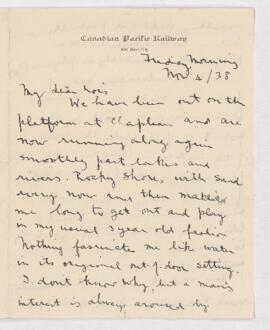 Canadian Pacific Railway
Friday Morning
Nov 4/38
My dear Lois
We have been out on the
platform at Chapleau and are
now running along again
smoothly past lakes and
rivers. Rocky Shore, with sand
every now and then makes
me long to get out and play
in my usual 3 year old fashion
Nothing fascinate me like water
in its original out-of-door setting.
I don't know why, but a man's
interest is always aroused by